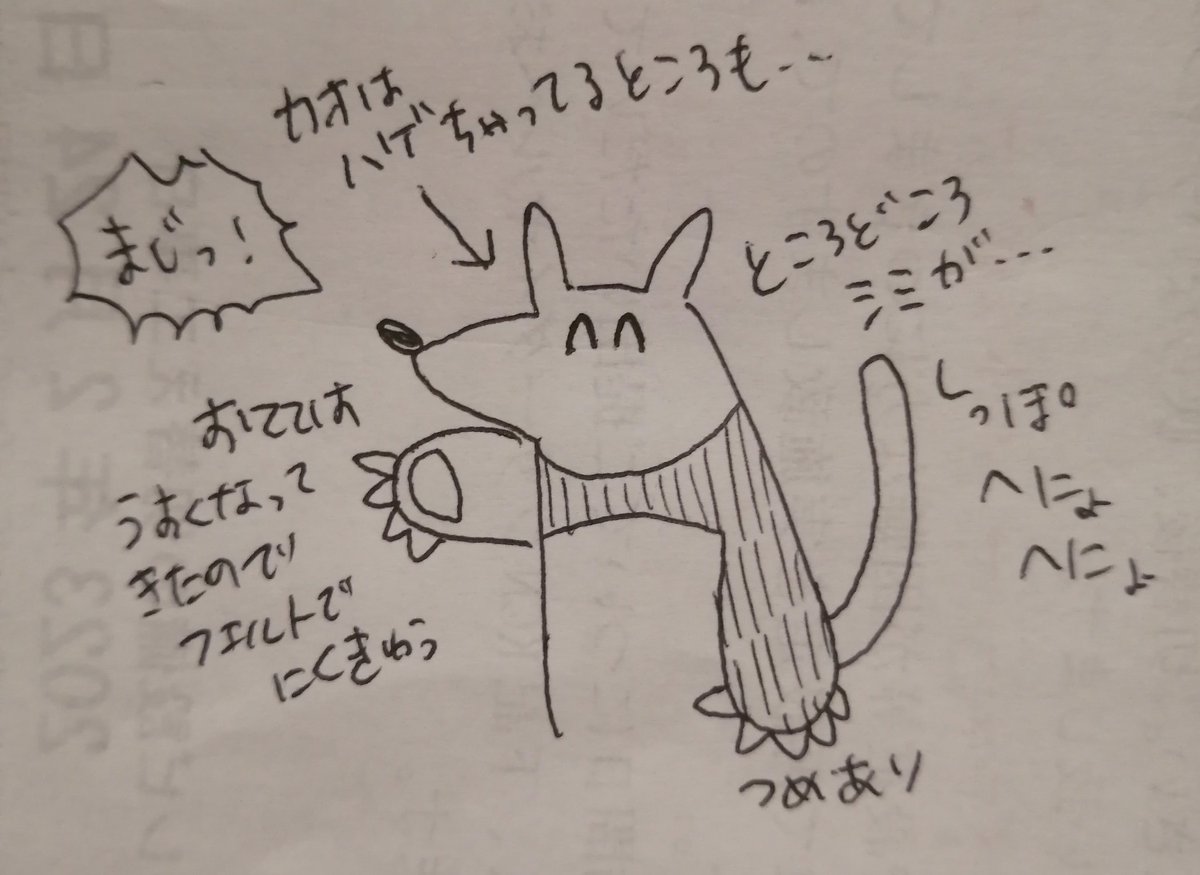 カオは
ハゲちゃってるところも…
まじっ!
ところどころ
シミが…
おてては
うすくなって
きたので
フェルトで
にくきゅう
しっぽ
へにょ
へにょ
つめあり